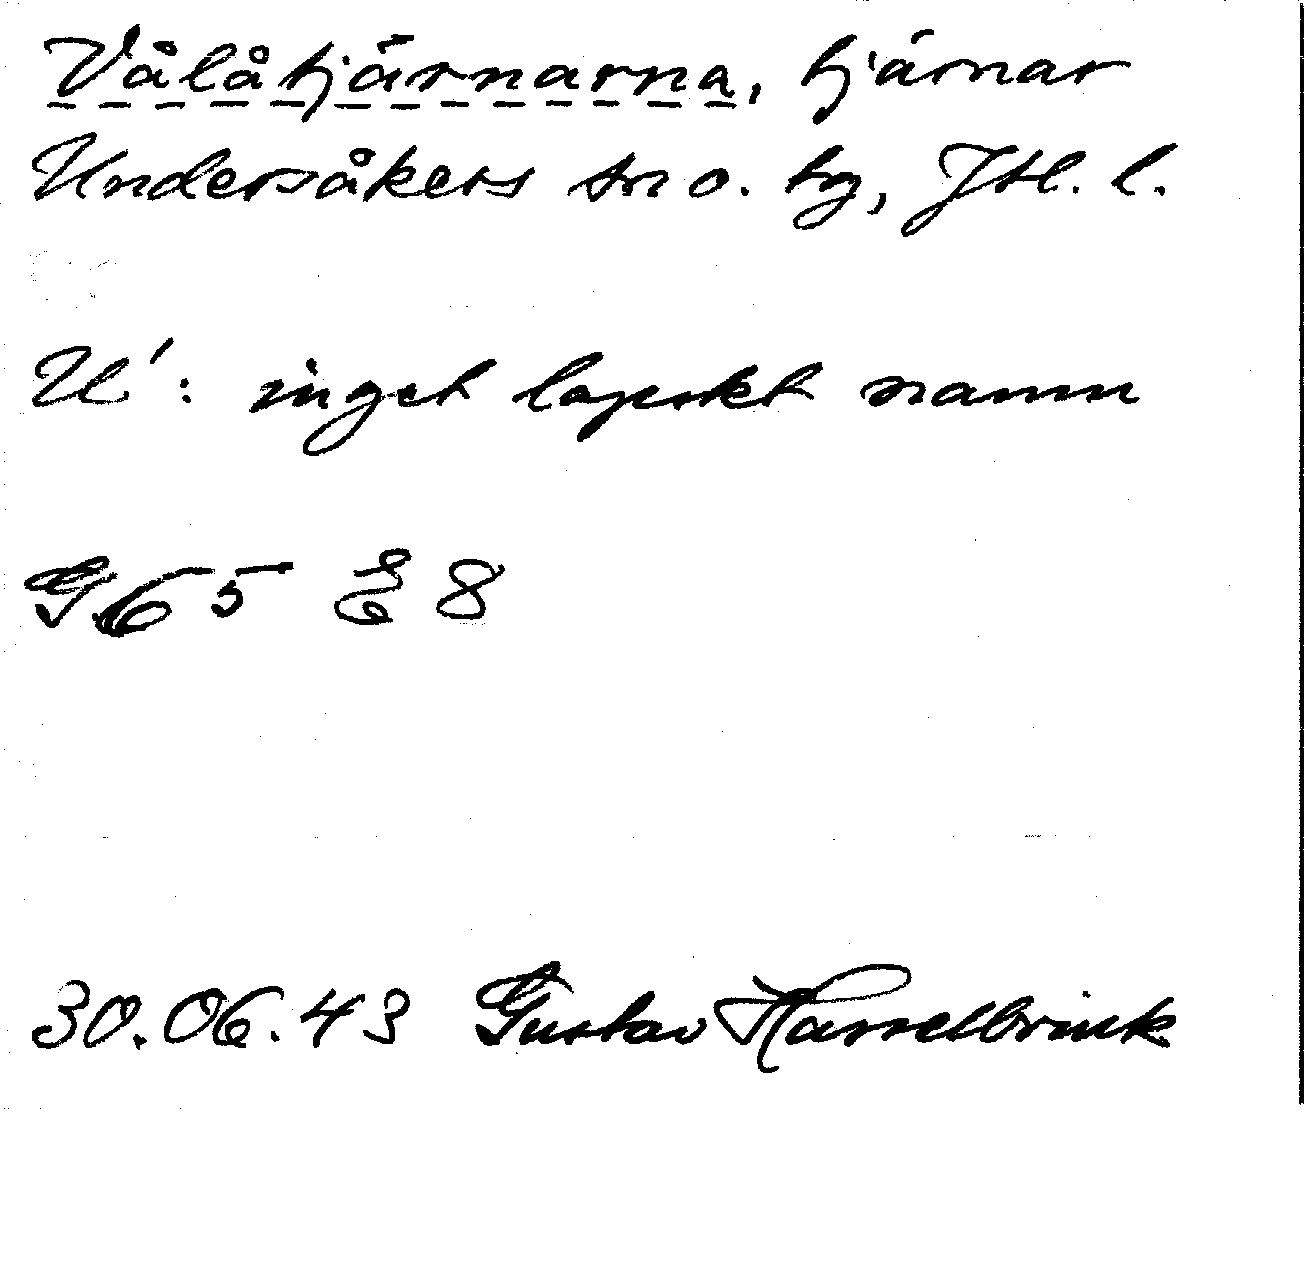 Vålåtjärnarna, tjärnar
Undersåkers sn o. tg, Jtl. l.
U': inget lapskt namn
G65 E8
30.06.43 Gustav Hasselbrink